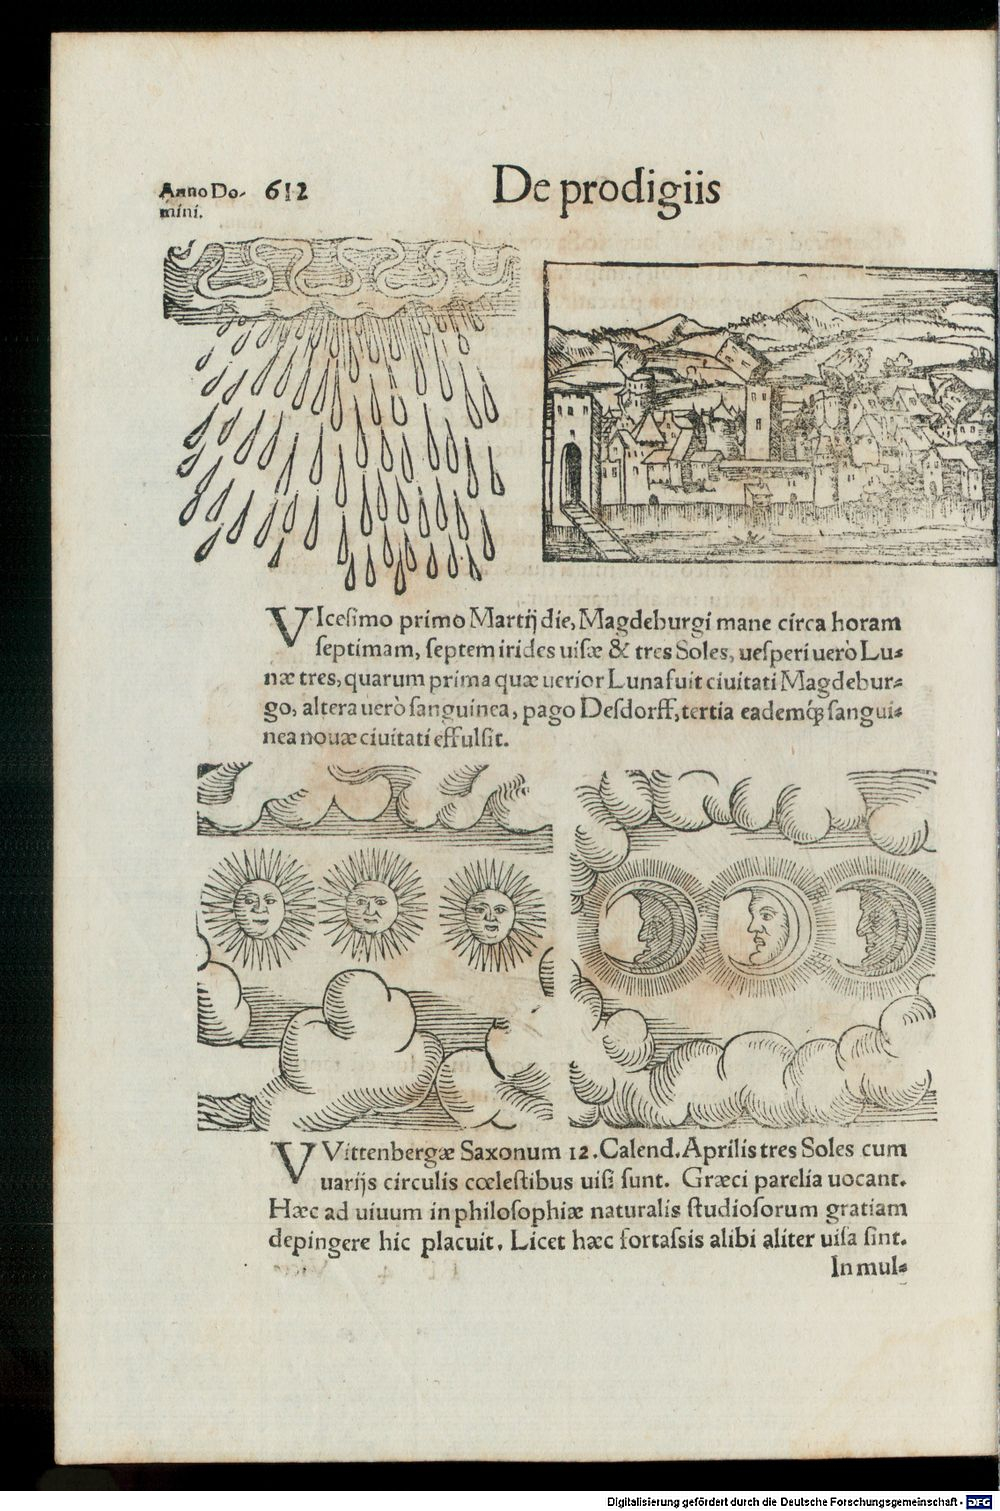 Anno Do- 612 De prodigiis
mini.
VIcesimo primo Martij die, Magdeburgi mane circa horam
septimam, septem irides uisæ & tres Soles, uesperi uerò Lu-
næ tres, quarum prima quæ uerior Luna fuit ciuitati Magdebur-
go, altera uerò sanguinea, pago Desdorff, tertia eademq́ꝫ sangui-
nea nouæ ciuitati effulsit.
VVittenbergæ Saxonum 12. Calend. Aprilis tres Soles cum
uarijs circulis cœlestibus uisi sunt. Græci parelia uocant.
Hæc ad uiuum in philosophiæ naturalis studiosorum gratiam
depingere hic placuit. Licet hæc fortassis alibi aliter uisa sint.
In mul-
Digitalisierung gefördert durch die Deutsche Forschungsgemeinschaft - DFG